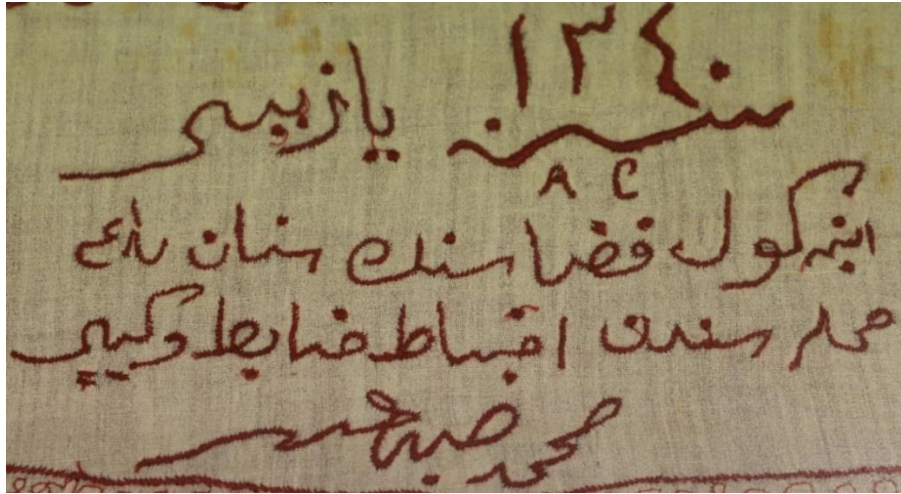 ١٣٤٠
سنه يازيسى
A C
اينه كول قضا سنك سنان
محله سندن احتياط ضابط وكيلى
محمد صبحى